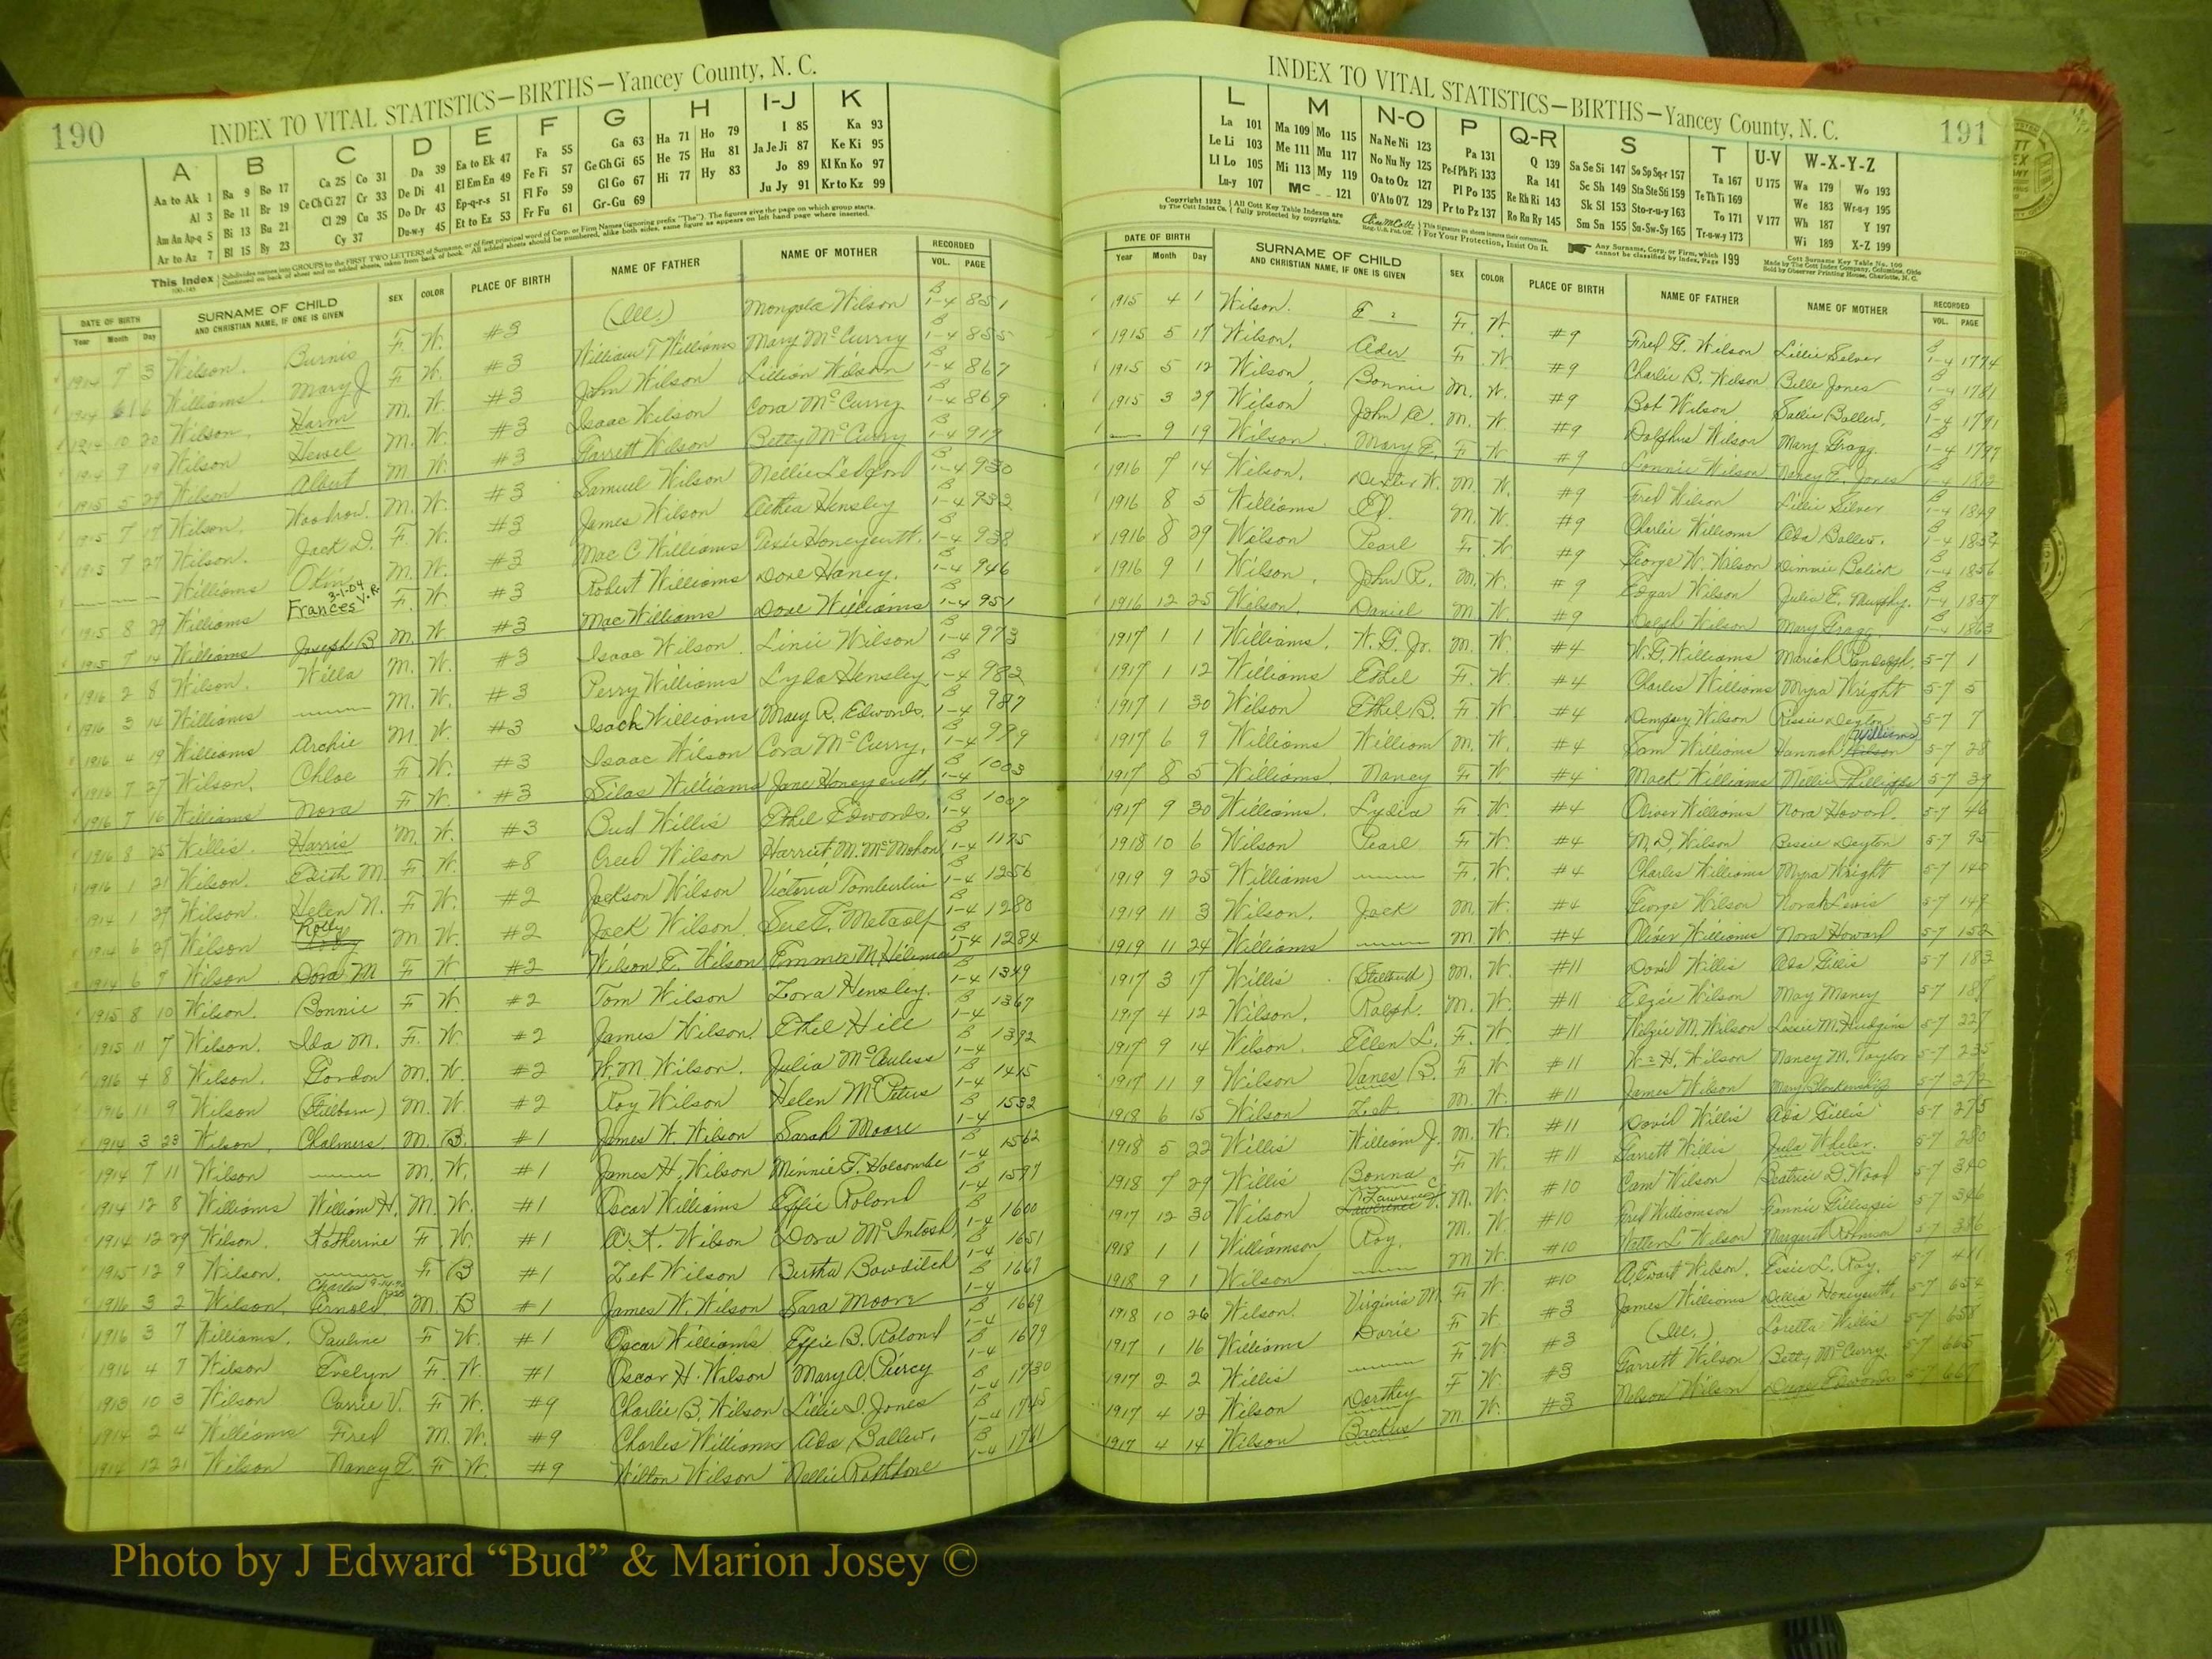 190
INDEX TO VITAL STATISTICS—BIRTHS—Yancey County, N. C.
A B C D E F G H I-J K
Aa to Ak 1 Ba 9 Bo 17 Ca 25 Co 31 Da 39 Ea to Ek 47 Fa 55 Ga 63 Ha 71 Ho 79 I 85 Ka 93
Al 3 Be 11 Br 19 Ce Ch Ci 27 Cr 33 De Di 41 El Em En 49 Fe Fi 57 Ge Gh Gi 65 He 75 Hu 81 Ja Je Ji 87 Ke Ki 95
Am An Ap-q 5 Bi 13 Bu 21 Cl 29 Cu 35 Do Dr 43 Ep-q-r-s 51 Fl Fo 59 Gl Go 67 Hi 77 Hy 83 Jo 89 Kl Kn Ko 97
Ar to Az 7 Bl 15 By 23 Cy 37 Du-w-y 45 Et to Ez 53 Fr Fu 61 Gr-Gu 69 Ju Jy 91 Kr to Kz 99
This Index
DATE OF BIRTH SURNAME OF CHILD SEX COLOR PLACE OF BIRTH NAME OF FATHER NAME OF MOTHER RECORDED
Year Month Day AND CHRISTIAN NAME, IF ONE IS GIVEN VOL. PAGE
1914 7 3 Wilson. Burnis F. W. #3 (Ill.) Mongola Wilson B 1-4 851
1914 6 16 Williams. Mary J F W. #3 William T Williams Mary McCurry B 1-4 855
1914 10 20 Wilson. Harm M. W. #3 John Wilson Lillian Wilson B 1-4 867
1914 9 19 Wilson Hewel M. W. #3 Isaac Wilson Cora McCurry B 1-4 869
1915 5 29 Wilson Albert M W. #3 Garrett Wilson Betty McCurry B 1-4 919
1915 7 17 Wilson. Woodrow. M. W. #3 Samuel Wilson Nellie Ledford B 1-4 930
1915 7 27 Wilson. Jack D. F. W. #3 James Wilson Aethea Hensley B 1-4 932
— — — Williams M. W. #3 Mac C Williams Honeycutt. B 1-4 938
1915 8 29 Williams Frances 3-1-04 V.R. F. W. #3 Robert Williams Dove Haney. B 1-4 946
1915 7 14 Williams Joseph B M. W #3 Mac Williams Dove Williams B 1-4 951
1916 2 8 Wilson. Willa M. W. #3 Isaac Wilson. Linii Wilson B 1-4 973
1916 3 14 Williams —— M. W. #3 Perry Williams Lyda Hensley B 1-4 982
1916 4 19 Williams Archie M. W. #3 Isach Williams Mary R. Edwards. B 1-4 987
1916 7 27 Wilson. Chloe F. W. #3 Isaac Wilson Cora McCurry. B 1-4 999
1916 7 16 Williams Nora F W. #3 Silas Williams Jane Honeycutt. B 1-4 1003
1916 8 25 Willis. Harris M. W. #3 Bud Willis Ethel Edwards. B 1-4 1007
1916 1 21 Wilson. Edith M. F. W. #8 Creed Wilson Harriet M. McMahon B 1-4 1175
1914 1 29 Wilson. Helen N. F W. #2 Jackson Wilson Victoria Tomberlin B 1-4 1256
1914 6 27 Wilson Rolly M W. #2 Jack Wilson. Sue T. Metcalf B 1-4 1280
1914 6 7 Wilson Dora M F W #2 Wilson E. Wilson Emma M. Hileman B 1-4 1284
1915 8 10 Wilson. Bonnie F W. #2 Tom Wilson Zora Hensley. B 1-4 1349
1915 11 7 Wilson. Ida M. F. W. #2 James Wilson. Ethel Hill B 1-4 1367
1916 4 8 Wilson. Gordon M. W. #2 W. M. Wilson. Julia B 1-4 1392
1916 11 9 Wilson (Stillborn) M. W. #2 Roy Wilson Helen McPeters B 1-4 1415
1914 3 23 Wilson. Chalmers. M. B. #1 James W. Wilson Sarah Moore B 1-4 1532
1914 7 11 Wilson —— M. W. #1 James H. Wilson Minnie F. Holcombe B 1-4 1562
1914 12 8 Williams William H. M. W. #1 Oscar Williams Effie Roland B 1-4 1597
1914 12 29 Wilson. Katherine F. W. #1 A. K. Wilson Dora McIntosh B 1-4 1600
1915 12 9 Wilson. —— F B #1 Zeb Wilson Bertha Bowditch B 1-4 1651
1916 3 2 Wilson. Charles Arnold M. B #1 James W. Wilson Sara Moore B 1-4 1667
1916 3 7 Williams. Pauline F W. #1 Oscar Williams Effie B. Roland B 1-4 1669
1916 4 7 Wilson Evelyn F. W. #1 Oscar H. Wilson Mary A. Piercy B 1-4 1679
1913 10 3 Wilson Carrie V. F W. #9 Charlie B. Wilson Lillie I. Jones B 1-4 1730
1914 2 4 Williams Fred M. W. #9 Charles Williams Ada Ballew. B 1-4 1745
1914 12 21 Wilson Nancy E. F W. #9 Wilton Wilson Nellie Rathbone B 1-4 1761
INDEX TO VITAL STATISTICS—BIRTHS—Yancey County, N. C.
191
L M N-O P Q-R S T U-V W-X-Y-Z
La 101 Ma 109 Mo 115 Na Ne Ni 123 Pa 131 Q 139 Sa Se Si 147 So Sp Sq-r 157 Ta 167 U 175 Wa 179 Wo 193
Le Li 103 Me 111 Mu 117 No Nu Ny 125 Pe-f Ph Pi 133 Ra 141 Sc Sh 149 Sta Ste Sti 159 Te Th Ti 169 We 183 Wr-u-y 195
Ll Lo 105 Mi 113 My 119 Oa to Oz 127 Pl Po 135 Re Rh Ri 143 Sk Sl 153 Sto-r-u-y 163 To 171 V 177 Wh 187 Y 197
Lu-y 107 Mc 121 O'A to O'Z 129 Pr to Pz 137 Ro Ru Ry 145 Sm Sn 155 Su-Sw-Sy 165 Tr-u-w-y 173 Wi 189 X-Z 199
Copyright 1932 by The Cott Index Co. All Cott Key Table Indexes are fully protected by copyrights. For Your Protection, Insist On It. Any Surname, Corp. or Firm, which cannot be classified by Index, Page 199
Cott Surname Key Table No. 100
Made by The Cott Index Company, Columbus, Ohio
Sold by Observer Printing House, Charlotte, N. C.
DATE OF BIRTH SURNAME OF CHILD SEX COLOR PLACE OF BIRTH NAME OF FATHER NAME OF MOTHER RECORDED
Year Month Day AND CHRISTIAN NAME, IF ONE IS GIVEN VOL. PAGE
1915 4 1 Wilson. E F. W. #9 Fred G. Wilson Lillie Silver B 1-4 1774
1915 5 17 Wilson. Ader F. W. #9 Charlie B. Wilson Belle Jones B 1-4 1781
1915 5 12 Wilson. Bonnie M. W. #9 Bob Wilson Sallie Ballew. B 1-4 1791
1915 3 29 Wilson John A. M. W. #9 Dolphus Wilson Mary Gragg. B 1-4 1797
— 9 19 Wilson. Mary E. F W. #9 Lonnie Wilson Nancy E. Jones B 1-4
1916 7 14 Wilson. Dexter W. M. W. #9 Fred Wilson Lillie Silver B 1-4 1849
1916 8 5 Williams Ed. M. W. #9 Charlie Williams Ada Ballew. B 1-4 1854
1916 8 29 Wilson Pearl F. W #9 George W. Wilson Dimmie Bolick B 1-4 1856
1916 9 1 Wilson. John R. M. W. #9 Edgar Wilson Julia E. Murphy. B 1-4 1857
1916 12 25 Wilson. Daniel M W. #9 Dolph Wilson Mary Gragg B 1-4 1863
1917 1 1 Williams. W. G. Jr. M. W. #4 W. G. Williams Mariah Randolph. 5-7 1
1917 1 12 Williams Ethel F. W. #4 Charles Williams Myra Wright 5-7 5
1917 1 30 Wilson Ethel B. F. W. #4 Dempsey Wilson Deyton 5-7 7
1917 6 9 Williams William M. W. #4 Sam Williams Hannah Wilson Williams 5-7 28
1917 8 5 Williams. Nancy F W #4 Mack Williams Nellie Phillipps 5-7 39
1917 9 30 Williams. Lydia F. W. #4 Oliver Williams Nora Howard. 5-7 46
1918 10 6 Wilson Pearl F W. #4 M. D. Wilson Bessie Deyton 5-7 95
1919 9 25 Williams —— F. W. #4 Charles Williams Myra Wright 5-7 140
1919 11 3 Wilson. Jack M. W. #4 George Wilson Norah Lewis 5-7 149
1919 11 24 Williams —— M W. #4 Oliver Williams Nora Howard 5-7 152
1917 3 17 Willis (Stillbirth) M. W. #11 David Willis Ada Gillis 5-7 183
1917 4 12 Wilson. Ralph. M. W. #11 Elzie Wilson May Maney 5-7 187
1917 9 14 Wilson. Ellen L. F. W. #11 Welzie M. Wilson Lissie M. Hudgins 5-7 227
1917 11 9 Wilson Vanes B. F. W #11 Wm H. Wilson Nancy M. Taylor 5-7 235
1918 6 15 Wilson Zeb. M. W. #11 James Wilson Mary Blankenship 5-7 272
1918 5 22 Willis William J. M. W. #11 David Willis Ada Gillis 5-7 275
1918 7 29 Willis Bonna F W. #11 Garrett Willis Jula Wheler. 5-7 280
1917 12 30 Wilson Lawrence C. M. W. #10 Cam Wilson Beatrice D. Wood 5-7 340
1918 1 1 Williamson Roy. M. W. #10 Fred Williamson Fannie Gillespie 5-7 346
1918 9 1 Wilson —— M W. #10 Walter L. Wilson Margaret Robinson 5-7 386
1918 10 26 Wilson. Virginia M. F W. #10 A. Ewart Wilson. Essie L. Ray. 5-7 411
1917 1 16 Williams Doris F W. #3 James Williams Dellia Honeycutt. 5-7 654
1917 2 2 Willis —— F. W. #3 (Ill.) Loretta Willis 5-7 658
1917 4 12 Wilson Dorthey F W. #3 Garrett Wilson Betty McCurry. 5-7 665
1917 4 14 Wilson Backus M. W. #3 Nelson Wilson Edwards 5-7 667
Photo by J Edward “Bud” & Marion Josey ©